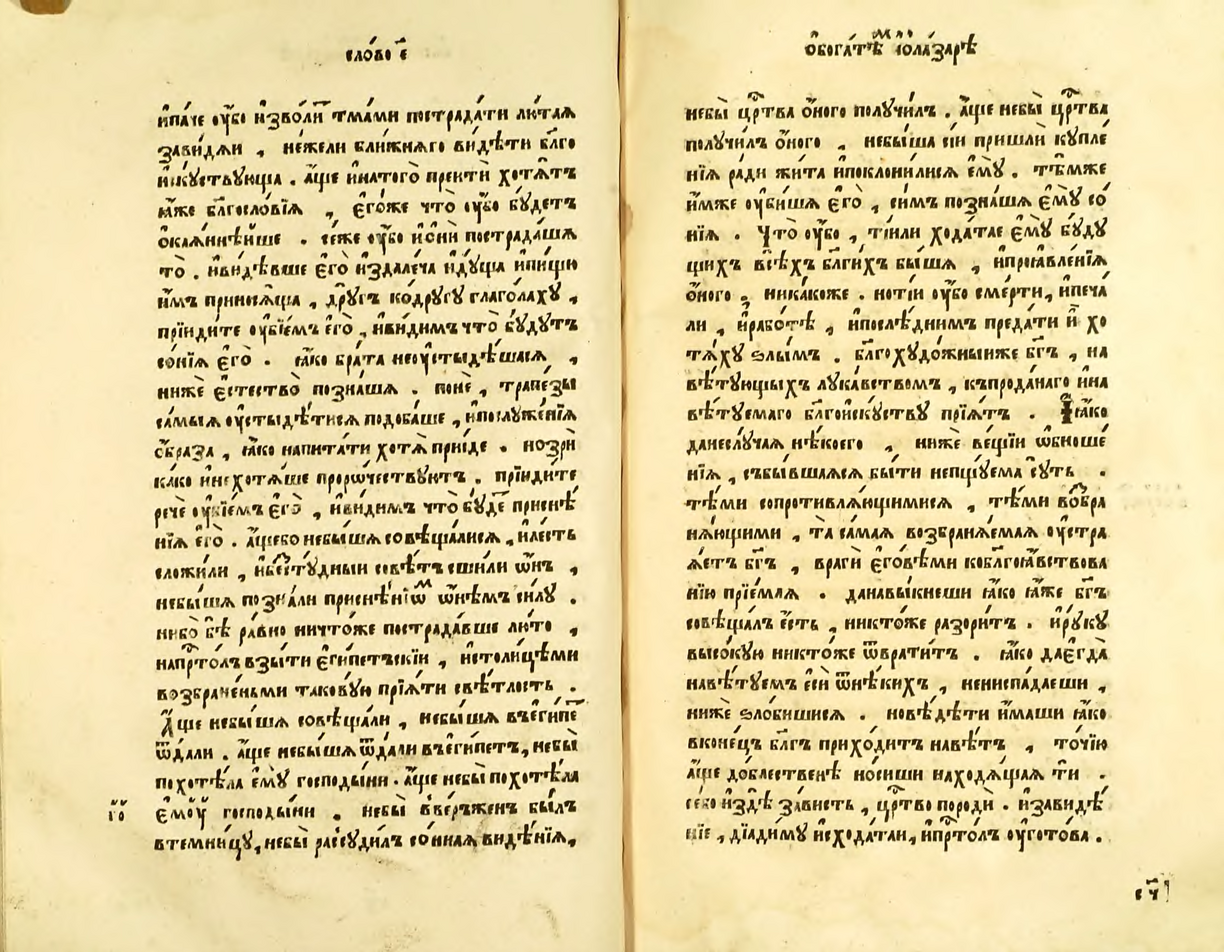 сло́во є҃
ѝпа́че ᲂу҆́бо и҆зво́ли тма́ми пострада́ти лю́таѧ
зави́дѧи , не́жели бли́жнѧго ви́дѣти бл҃го
и҆ску́ствующа . а҆́ще и҆натого̀ прейтѝ хотѧ́тъ
ꙗ҆́же бл҃госло́вїѧ , є҆го́же что̀ ᲂу҆́бо бу́детъ
ѻ҆каѧ́ннѣйше . се́же ᲂу҆́бо и҆сі́и пострада́шѧ
то̀ . и҆ви́дѣвше є҆го̀ и҆здале́ча и҆ду́ща и҆пи́щю
и҆̀мъ приносѧ́ща , дрꙋ́гъ ко́другу глаго́лаху ,
прїиди́те ᲂу҆бїе́мъ є҆го̀ , и҆ви́димъ что̀ бу́дутъ
со́нїѧ є҆го̀ . ꙗ҆́ко бра́та неᲂу҆стыдѣ́шасѧ ,
нижѐ є҆стество̀ позна́шѧ . понѐ , трапе́зы
са́мыѧ ᲂу҆стыдѣ́тисѧ подоба́ше , и҆послуже́нїѧ
ѻ҆́браза , ꙗ҆́ко напита́ти хотѧ̀ прїи́де . но́зри
ка́ко и҆нехотѧ́ше проро́чествуютъ . прїиди́те
речѐ ᲂу҆бїе́мъ є҆го̀ , и҆ви́димъ что̀ бу́деᵀ присне́
нїѧ є҆го̀ . а҆́щебо небы́шѧ совѣща́лисѧ , и҆ле́сть
сложи́ли , и҆бесту́дныи совѣ́тъ сши́ли ѡ҆́нъ ,
небы́шѧ позна́ли приснѣ́нїиѡᴹ ѡ҆́нѣмъ си́лу .
ни́бо бѣ̀ ра́вно ничто́же пострада́вше лю́то ,
напрⷭ҇то́лъ взы́ти є҆ги́петъскїи , и҆столи́цѣми
возбране́ньми такову́ю прїѧ́ти свѣ́тлость .
А҆́ще небы́шѧ совѣща́ли , небы́шѧ въє҆ги́пеᵀ
ѿда́ли . а҆́ще небы́шѧ ѿда́ли въє҆ги́петъ , небы̀
похотѣ́ла є҆му̀ господы́ни . а҆́ще небы̀ похотѣ́ла
є҆мо́у господы́ни . небы̀ вве́рженъ бы́лъ
втемни́цу , небы̀ разсуди́лъ со́ннаѧ видѣ́нїѧ ,
ѻ҆бога́тѣᴹ и҆ѻла́зарѣ
небы̀ црⷭ҇тва ѻ҆́ного получи́лъ . а҆́ще небы̀ црⷭ҇тва
получи́лъ ѻ҆́ного , небы́ша сі́и пришлѝ купле́
нїѧ ра́ди жи́та и҆поклони́лисѧ є҆му̀ . тѣ́мже
и҆́мже ᲂу҆би́шѧ є҆го̀ , си́мъ позна́шѧ є҆му̀ со́
нїѧ . Что̀ ᲂу҆́бо , ті́или хода́тае є҆му̀ бу́ду
щихъ всѣ́хъ бл҃ги́хъ бы́шѧ , и҆просла́вленїѧ
ѻ҆́ного , ника́коже . но́тїи ᲂу҆́бо сме́рти , и҆печа́
ли , и҆рабо́тѣ , и҆послѣ́днимъ преда́ти и҆̀ хо
тѧ́ху ѕлы́мъ . бл҃гохудо́жныиже бг҃ъ , на
вѣ́тующыхъ лука́вствомъ , къпрода́наго и҆на
вѣ́туемаго бл҃гои҆ску́ству прїѧ́тъ . И҆ꙗ҆́ко
данеслу́чаѧ нѣ́коего , нижѐ ве́щїи ѡ҆бноше́
нїѧ , събы́вшаѧсѧ бы́ти непщу́ема су́ть .
тѣ́ми сопротивлѧ́ющимисѧ , тѣ́ми во́збра
нѧ́ющими , та̀ са́маѧ возбранѧ́емаѧ ᲂу҆стра
ѧ́етъ бг҃ъ , врагѝ є҆го́вѣми кобл҃гоꙗ҆́вствова
нїю прїе́млѧ . данавы́кнеши ꙗ҆́ко ꙗ҆́же бг҃ъ
совѣща́лъ є҆́сть , никто́же разори́тъ . и҆ру́ку
высо́кую никто́же ѿврати́тъ . ꙗ҆́ко дає҆гда̀
навѣ́туемъ є҆сѝ ѿнѣ́кихъ , нениспа́даеши ,
нижѐ ѕло́бишисѧ . новѣ́дѣти и҆́маши ꙗ҆́ко
вконе́цъ бл҃гъ прихо́дитъ навѣ́тъ , то́чїю
а҆́ще до́блественѣ но́сиши находѧ́щаѧ тѝ .
се́бо и҆здѣ̀ за́висть , црⷭ҇тво породѝ . и҆зави́дѣ
нїе , дїади́му и҆схода́таи , и҆прⷭ҇то́лъ ᲂу҆гото́ва .